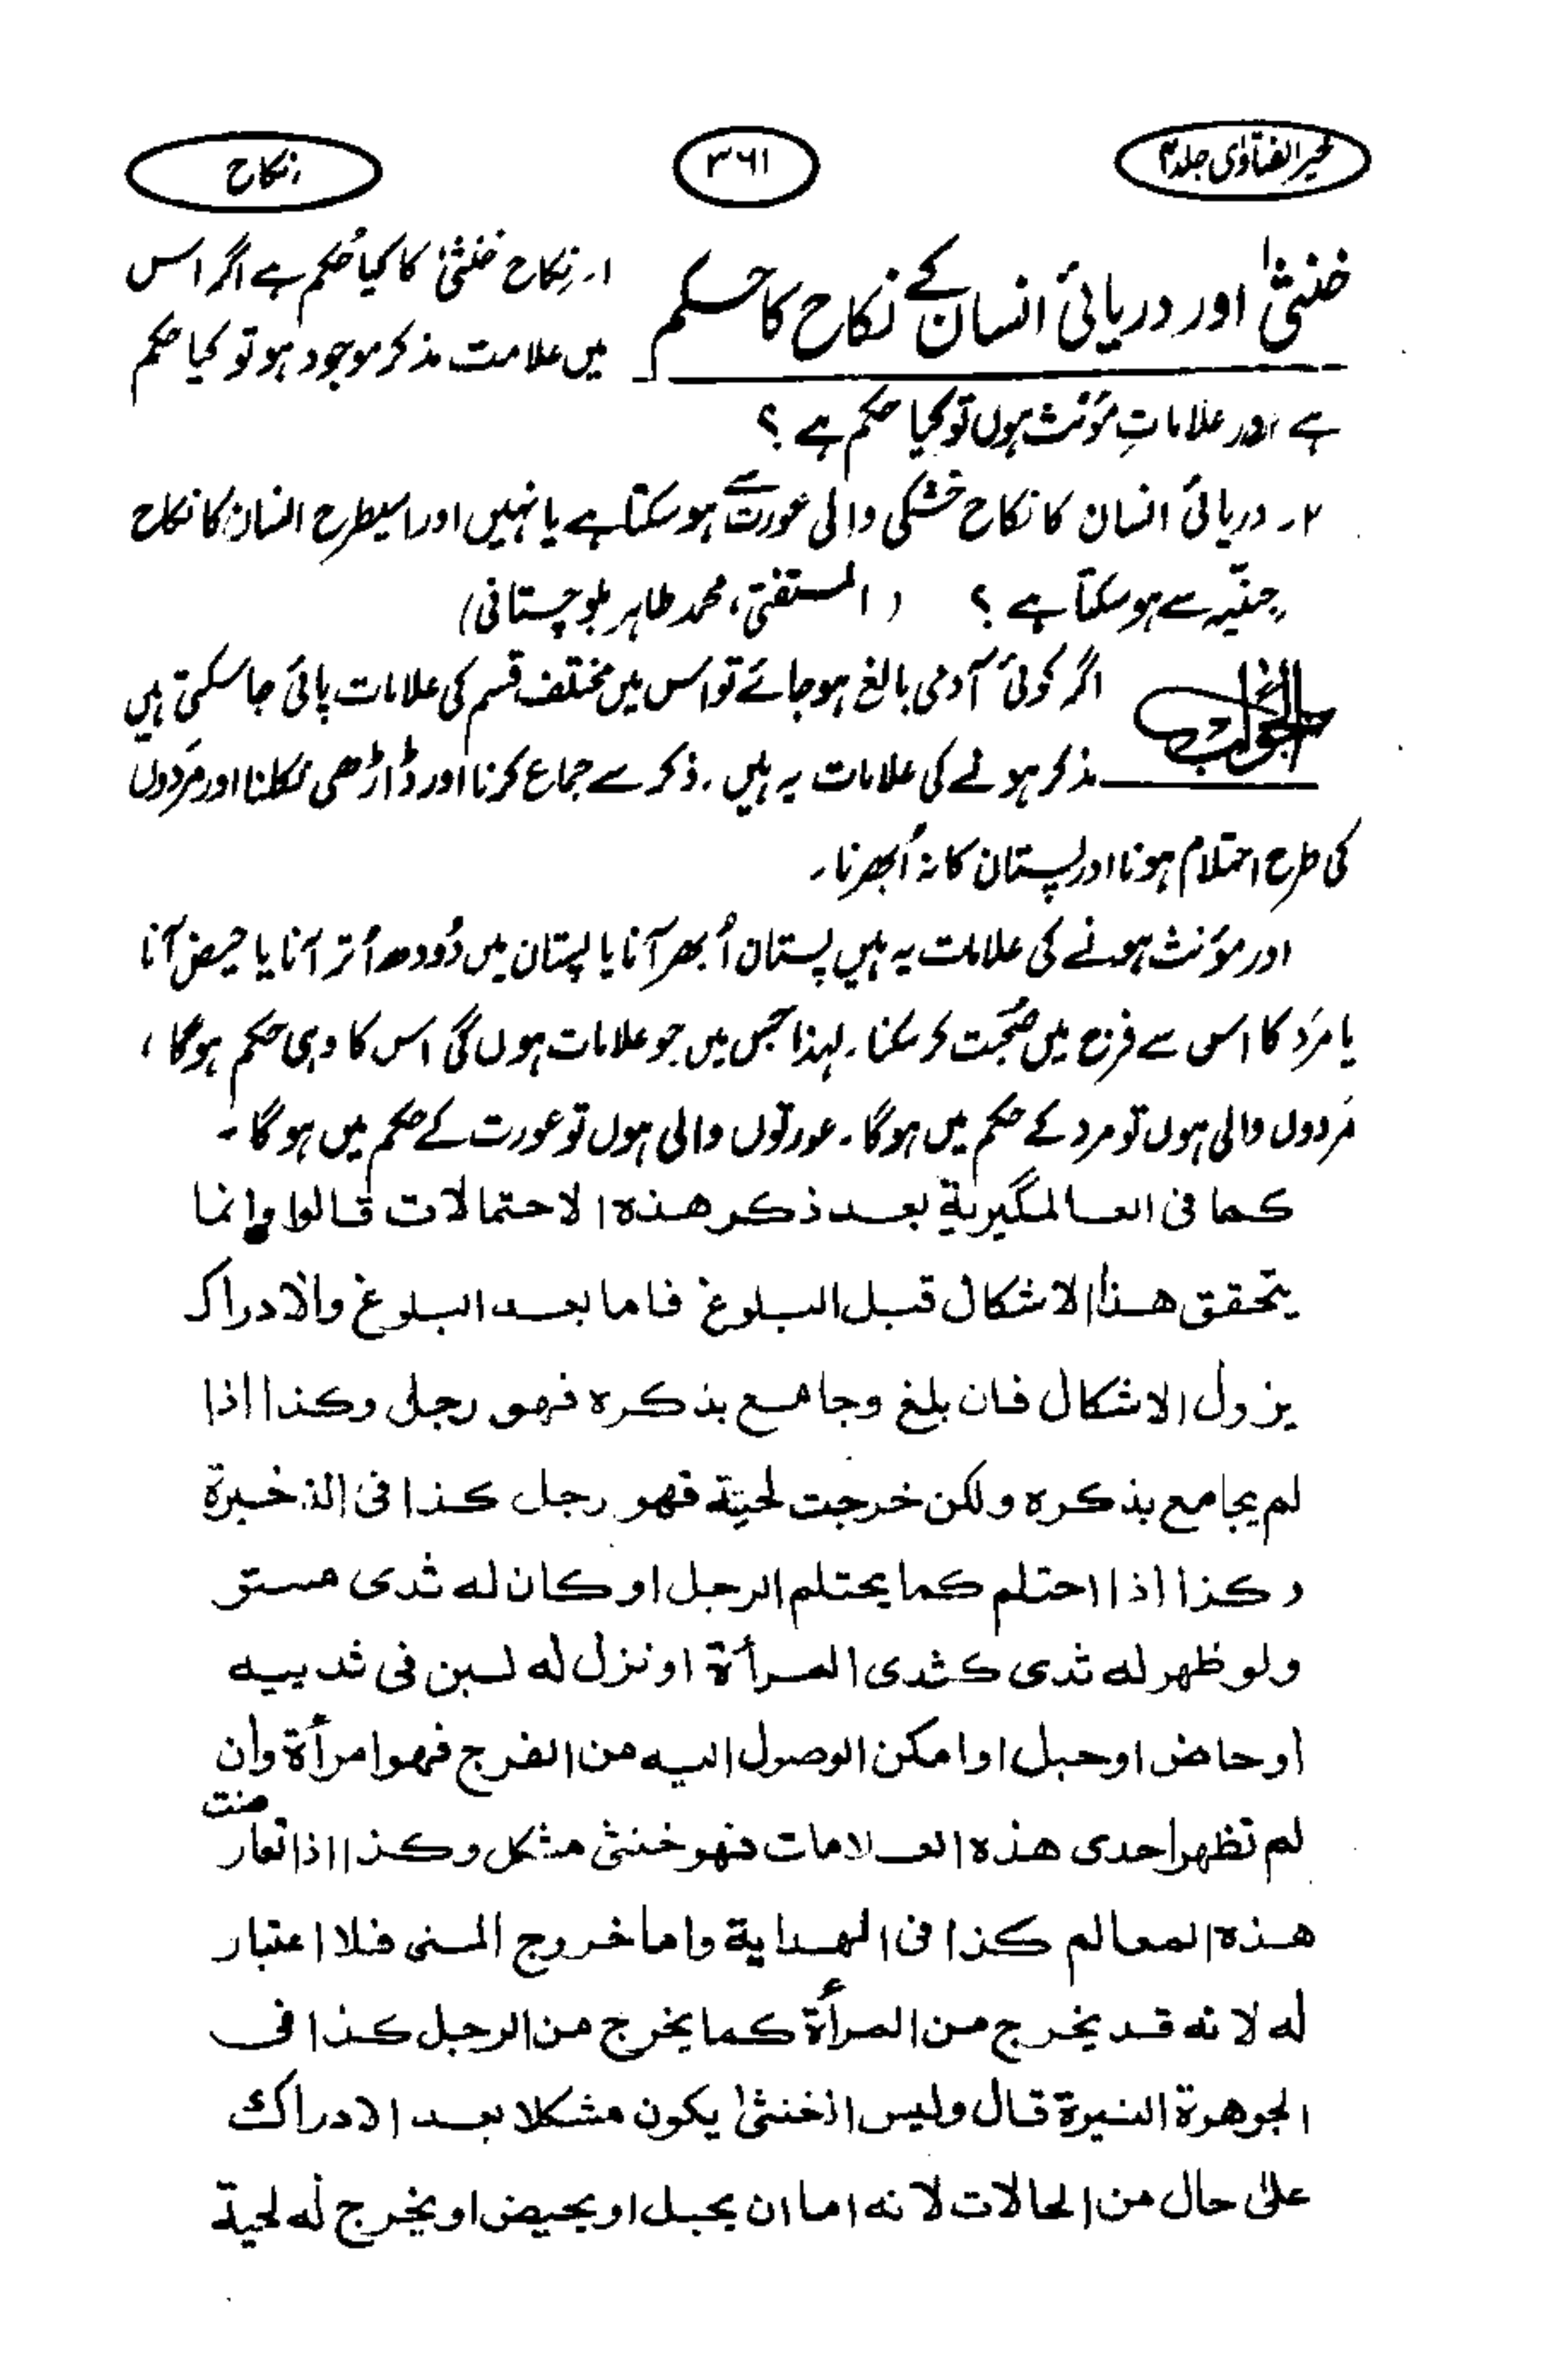 خیر الفتاوٰی جلد ۴
۳۶۱
نکاح
خنثیٰ اور دریائی انسان کے نکاح کا حکم
۱۔ نکاح خنثیٰ کا کیا حکم ہے اگر اس
میں علامت مذکر موجود ہو تو کیا حکم
ہے اور علاماتِ مؤنث ہوں تو کیا حکم ہے ؟
۲۔ دریائی انسان کا نکاح خشکی والی عورت سے ہو سکتا ہے یا نہیں اور اسیطرح انسان کا نکاح
جنّیہ سے ہو سکتا ہے ؟ (المستفتی، محمد طاہر بلوچستانی)
الجواب
اگر کوئی آدمی بالغ ہو جائے تو اس میں مختلف قسم کی علامات پائی جا سکتی ہیں
مذکر ہونے کی علامات یہ ہیں۔ ذکر سے جماع کرنا اور ڈاڑھی نکلنا اور مَردوں
کی طرح احتلام ہونا اور پستان کا نہ اُبھرنا۔
اور مؤنث ہونے کی علامات یہ ہیں پستان اُبھر آنا یا پستان میں دُودھ اُتر آنا یا حیض آنا
یا مَرد کا اس سے فرج میں صُحبت کر سکنا۔ لہذا جس میں جو علامات ہوں گی اس کا وہی حکم ہوگا ،
مَردوں والی ہوں تو مرد کے حکم میں ہوگا۔ عورتوں والی ہوں تو عورت کے حکم میں ہوگا۔
كما فى العالمگيرية بعد ذكر هذه الاحتمالات قالوا وانما
يتحقق هذا الاشكال قبل البلوغ فاما بعد البلوغ والادراك
يزول الاشكال فان بلغ وجامع بذكره فهو رجل وكذا اذا
لم يجامع بذكره ولكن خرجت لحيته فهو رجل كذا فى الذخيرة
وكذا اذا احتلم كما يحتلم الرجل او كان له ثدى مستو
ولو ظهر له ثدى كثدى المرأة او نزل له لبن فى ثدييه
او حاض او حبل او امكن الوصول اليه من الفرج فهو امرأة وان
لم تظهر احدى هذه العلامات فهو خنثى مشكل وكذا اذا تعارضت
هذه المعالم كذا فى الهداية واما خروج المنى فلا اعتبار
له لانه قد يخرج من المرأة كما يخرج من الرجل كذا فى
الجوهرة النيرة قال وليس الخنثىٰ يكون مشكلا بعد الادراك
علىٰ حال من الحالات لانه اما ان يحبل او يحيض او يخرج له لحية